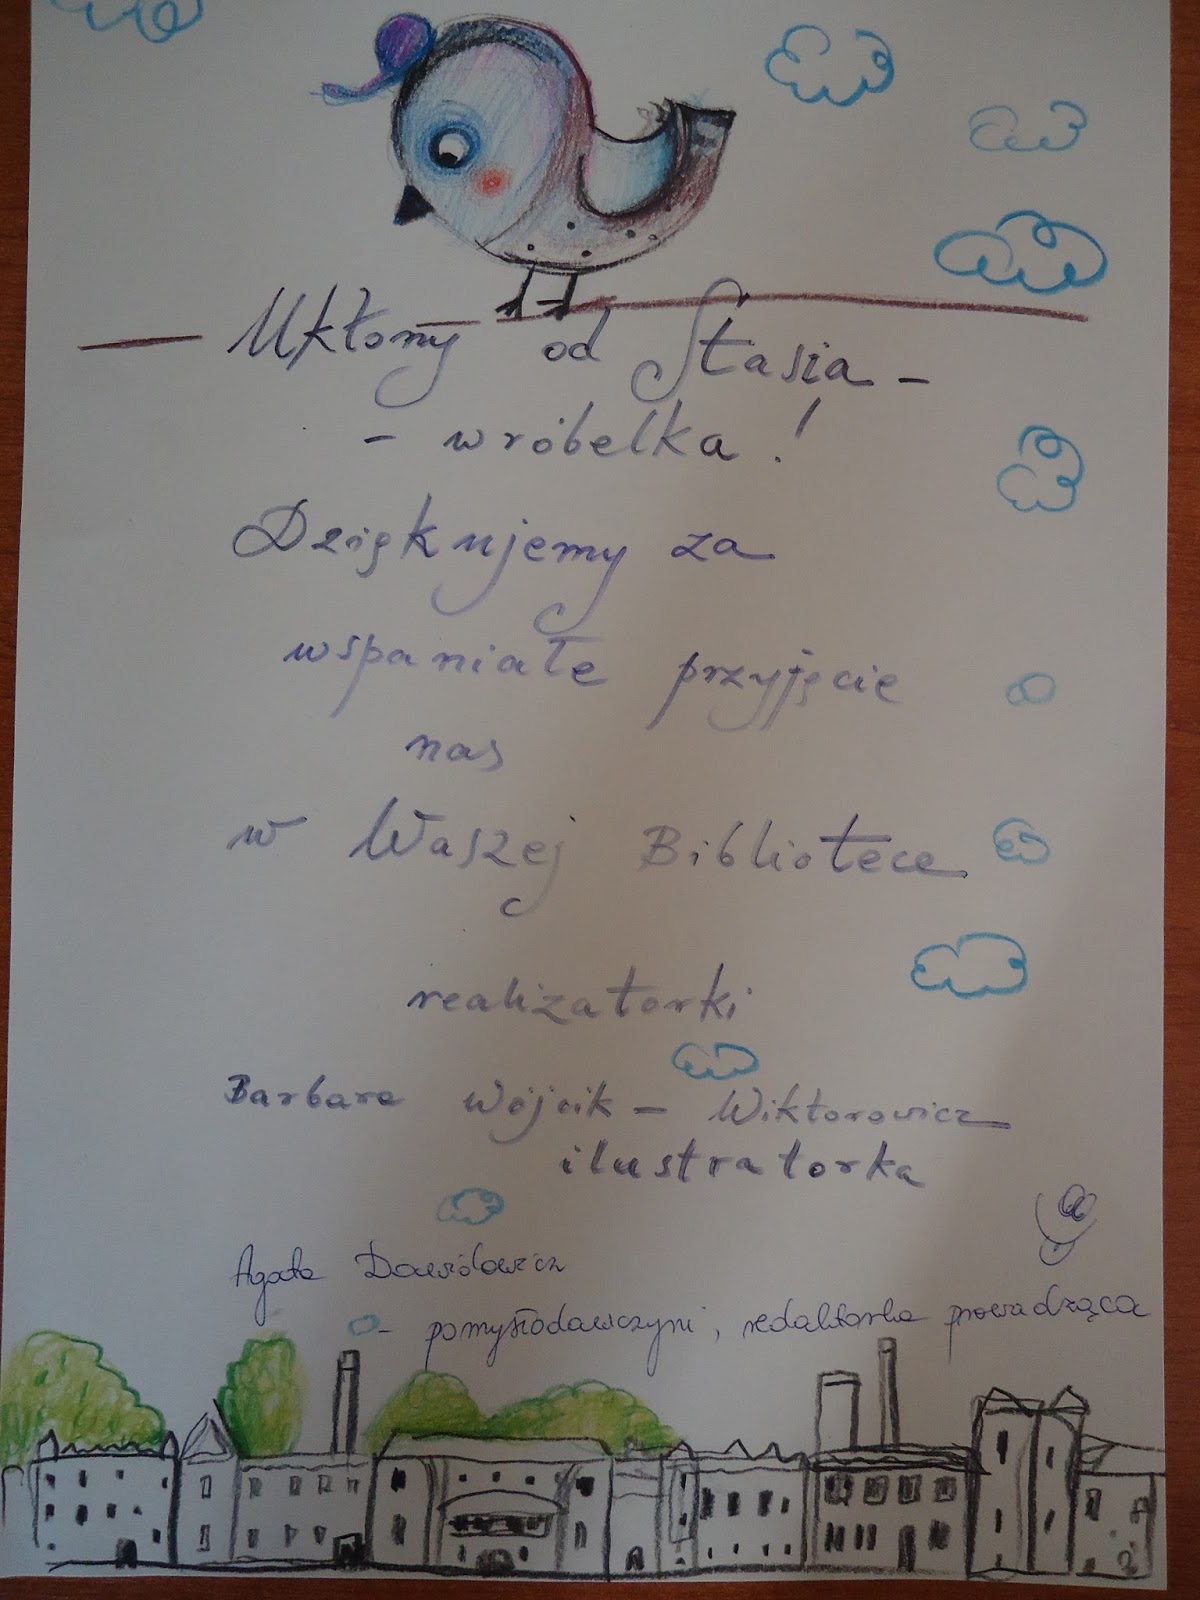 Ukłony od Stasia -
- wróbelka!
Dziękujemy za
wspaniałe przyjęcie
nas
w Waszej Bibliotece
realizatorki
Barbara Wójcik - Wiktorowicz
ilustratorka
Agata Dawidowicz
- pomysłodawczyni, redaktorka prowadząca